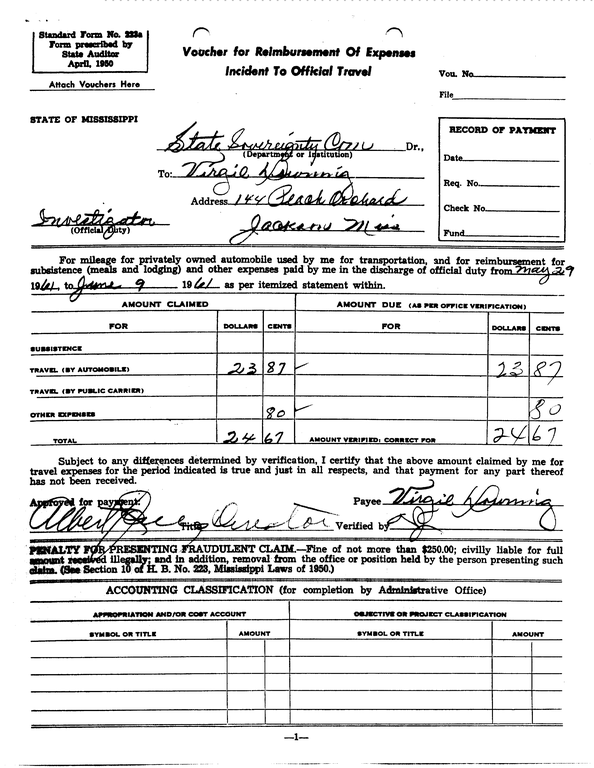 Standard Form No. 223a
Form prescribed by
State Auditor
April, 1950
Attach Vouchers Here
Voucher for Reimbursement Of Expenses
Incident To Official Travel
Vou. No.
File
STATE OF MISSISSIPPI
State Sovereignty Com Dr.,
(Department or Institution)
To: Virgil Downing
Address 144 Peach Orchard
Investigator
(Official Duty)
Jackson Miss
RECORD OF PAYMENT
Date
Req. No.
Check No.
Fund
For mileage for privately owned automobile used by me for transportation, and for reimbursement for
subsistence (meals and lodging) and other expenses paid by me in the discharge of official duty from May 29
1961, to June 9 1961 as per itemized statement within.
AMOUNT CLAIMED AMOUNT DUE (AS PER OFFICE VERIFICATION)
FOR DOLLARS CENTS FOR DOLLARS CENTS
SUBSISTENCE
TRAVEL (BY AUTOMOBILE) 23 87 23 87
TRAVEL (BY PUBLIC CARRIER)
OTHER EXPENSES 80 80
TOTAL 24 67 AMOUNT VERIFIED: CORRECT FOR 24 67
Subject to any differences determined by verification, I certify that the above amount claimed by me for
travel expenses for the period indicated is true and just in all respects, and that payment for any part thereof
has not been received.
Approved for payment: Payee Virgil Downing
Albert Title Director Verified by
PENALTY FOR PRESENTING FRAUDULENT CLAIM.—Fine of not more than $250.00; civilly liable for full
amount received illegally; and in addition, removal from the office or position held by the person presenting such
claim. (See Section 10 of H. B. No. 223, Mississippi Laws of 1950.)
ACCOUNTING CLASSIFICATION (for completion by Administrative Office)
APPROPRIATION AND/OR COST ACCOUNT OBJECTIVE OR PROJECT CLASSIFICATION
SYMBOL OR TITLE AMOUNT SYMBOL OR TITLE AMOUNT
—1—